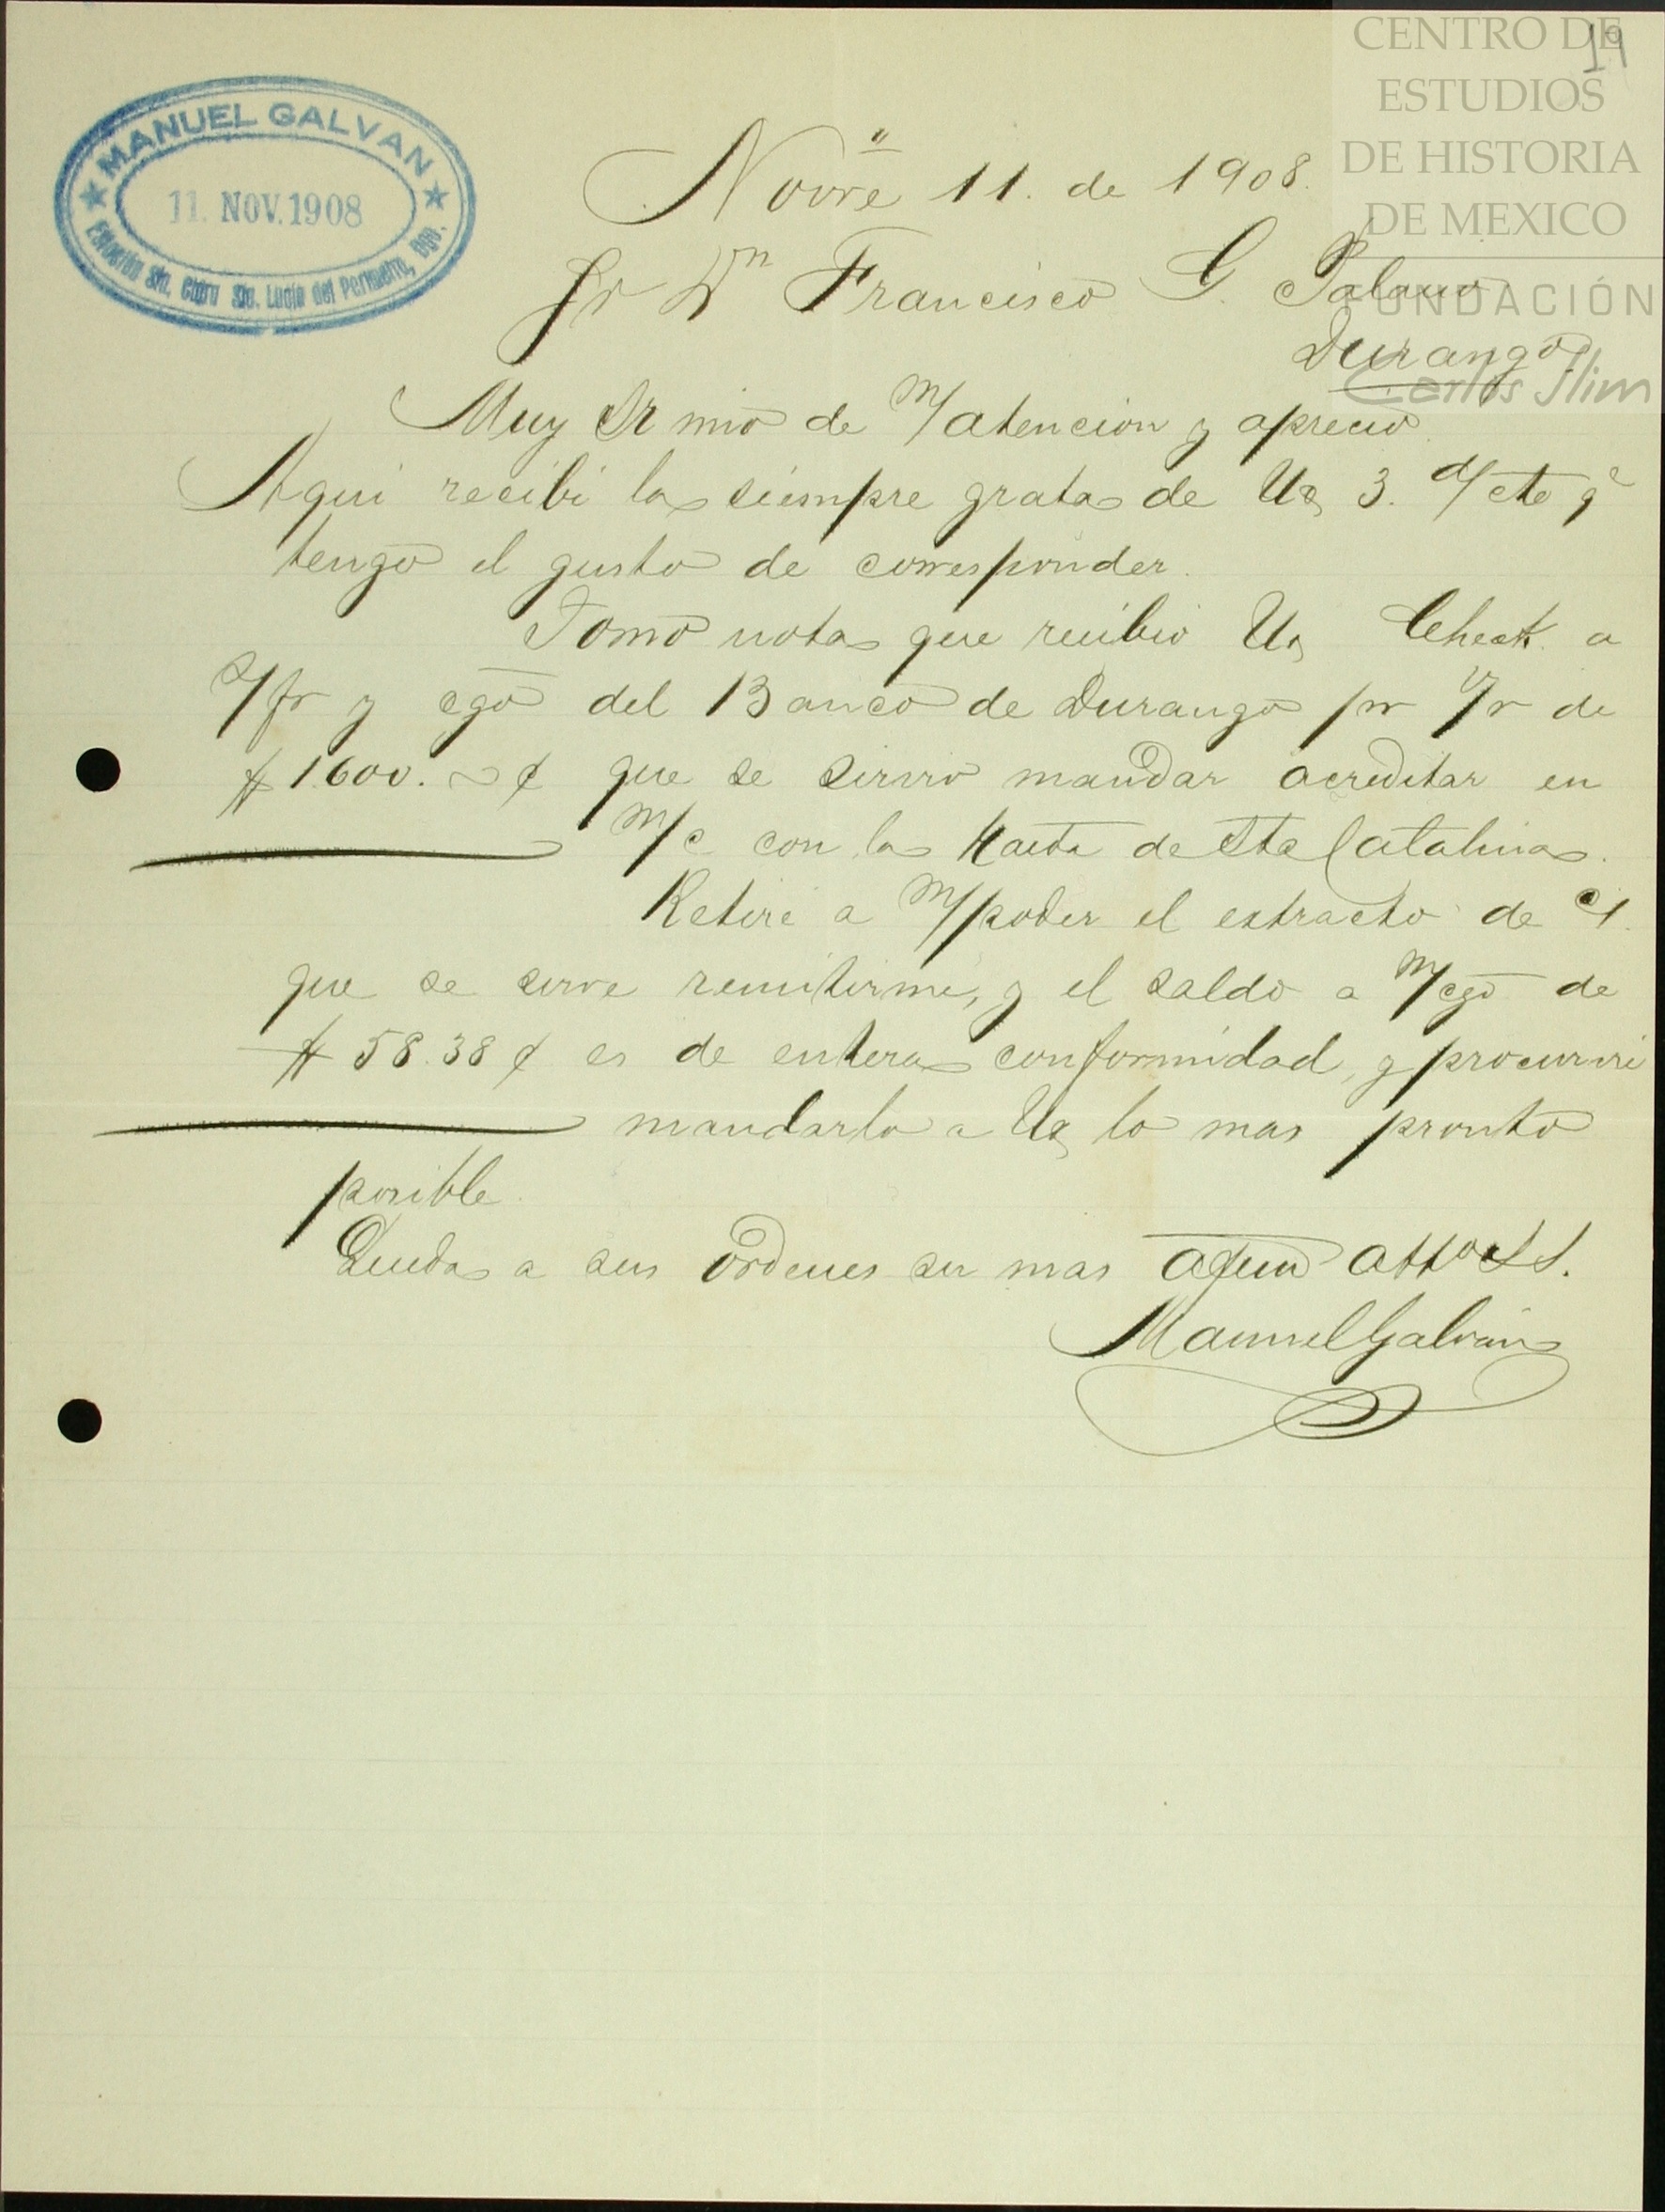 CENTRO DE
ESTUDIOS
DE HISTORIA
DE MEXICO
FUNDACIÓN
Carlos Slim
19
★ MANUEL GALVAN ★
11. NOV. 1908
Estación Sta. Clara Sta. Lucia del Perimetro, Dgo.
Novre 11. de 1908.
Sr Dn Francisco G. Palacio
Durango
Muy Sr mio de m/atencion y aprecio.
Aqui recibi la siempre grata de Ud 3. d/cte q̃
tengo el gusto de corresponder.
Tomo nota que recibio Ud Check. a
s/fr y cgo del Banco de Durango pr v/r de
$1.600. ~ ¢ que se sirvio mandar acreditar en
m/c con la Hacda de Sta Catalina.
Retire a m/poder el extracto de c/.
que se sirve remitirme, y el saldo a m/cgo de
$58.38 ¢ es de entera conformidad, y procurire
mandarlo a Ud lo mas pronto
posible.
Queda a sus ordenes su mas afmo atto SS.
Manuel Galvan